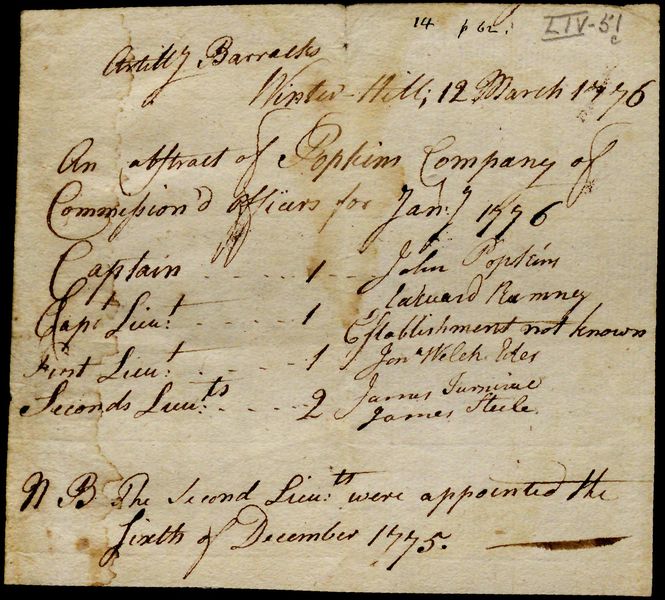 14 p 62. LIV-51
c
Artilly Barracks
Winter-Hill, 12 March 1776
An abstract of Popkins Company of
Commission'd officers for Jan:y 1776
Captain ---- 1 -- John Popkins
Capt Lieu:t ---- 1 Edward Rumney
Establishment not known
First Lieu:t ---- 1 Jona Welch Edes
Seconds Lieu:ts ---- 2 James
James Steele
N B The Second Lieu:ts were appointed the
Sixth of December 1775.